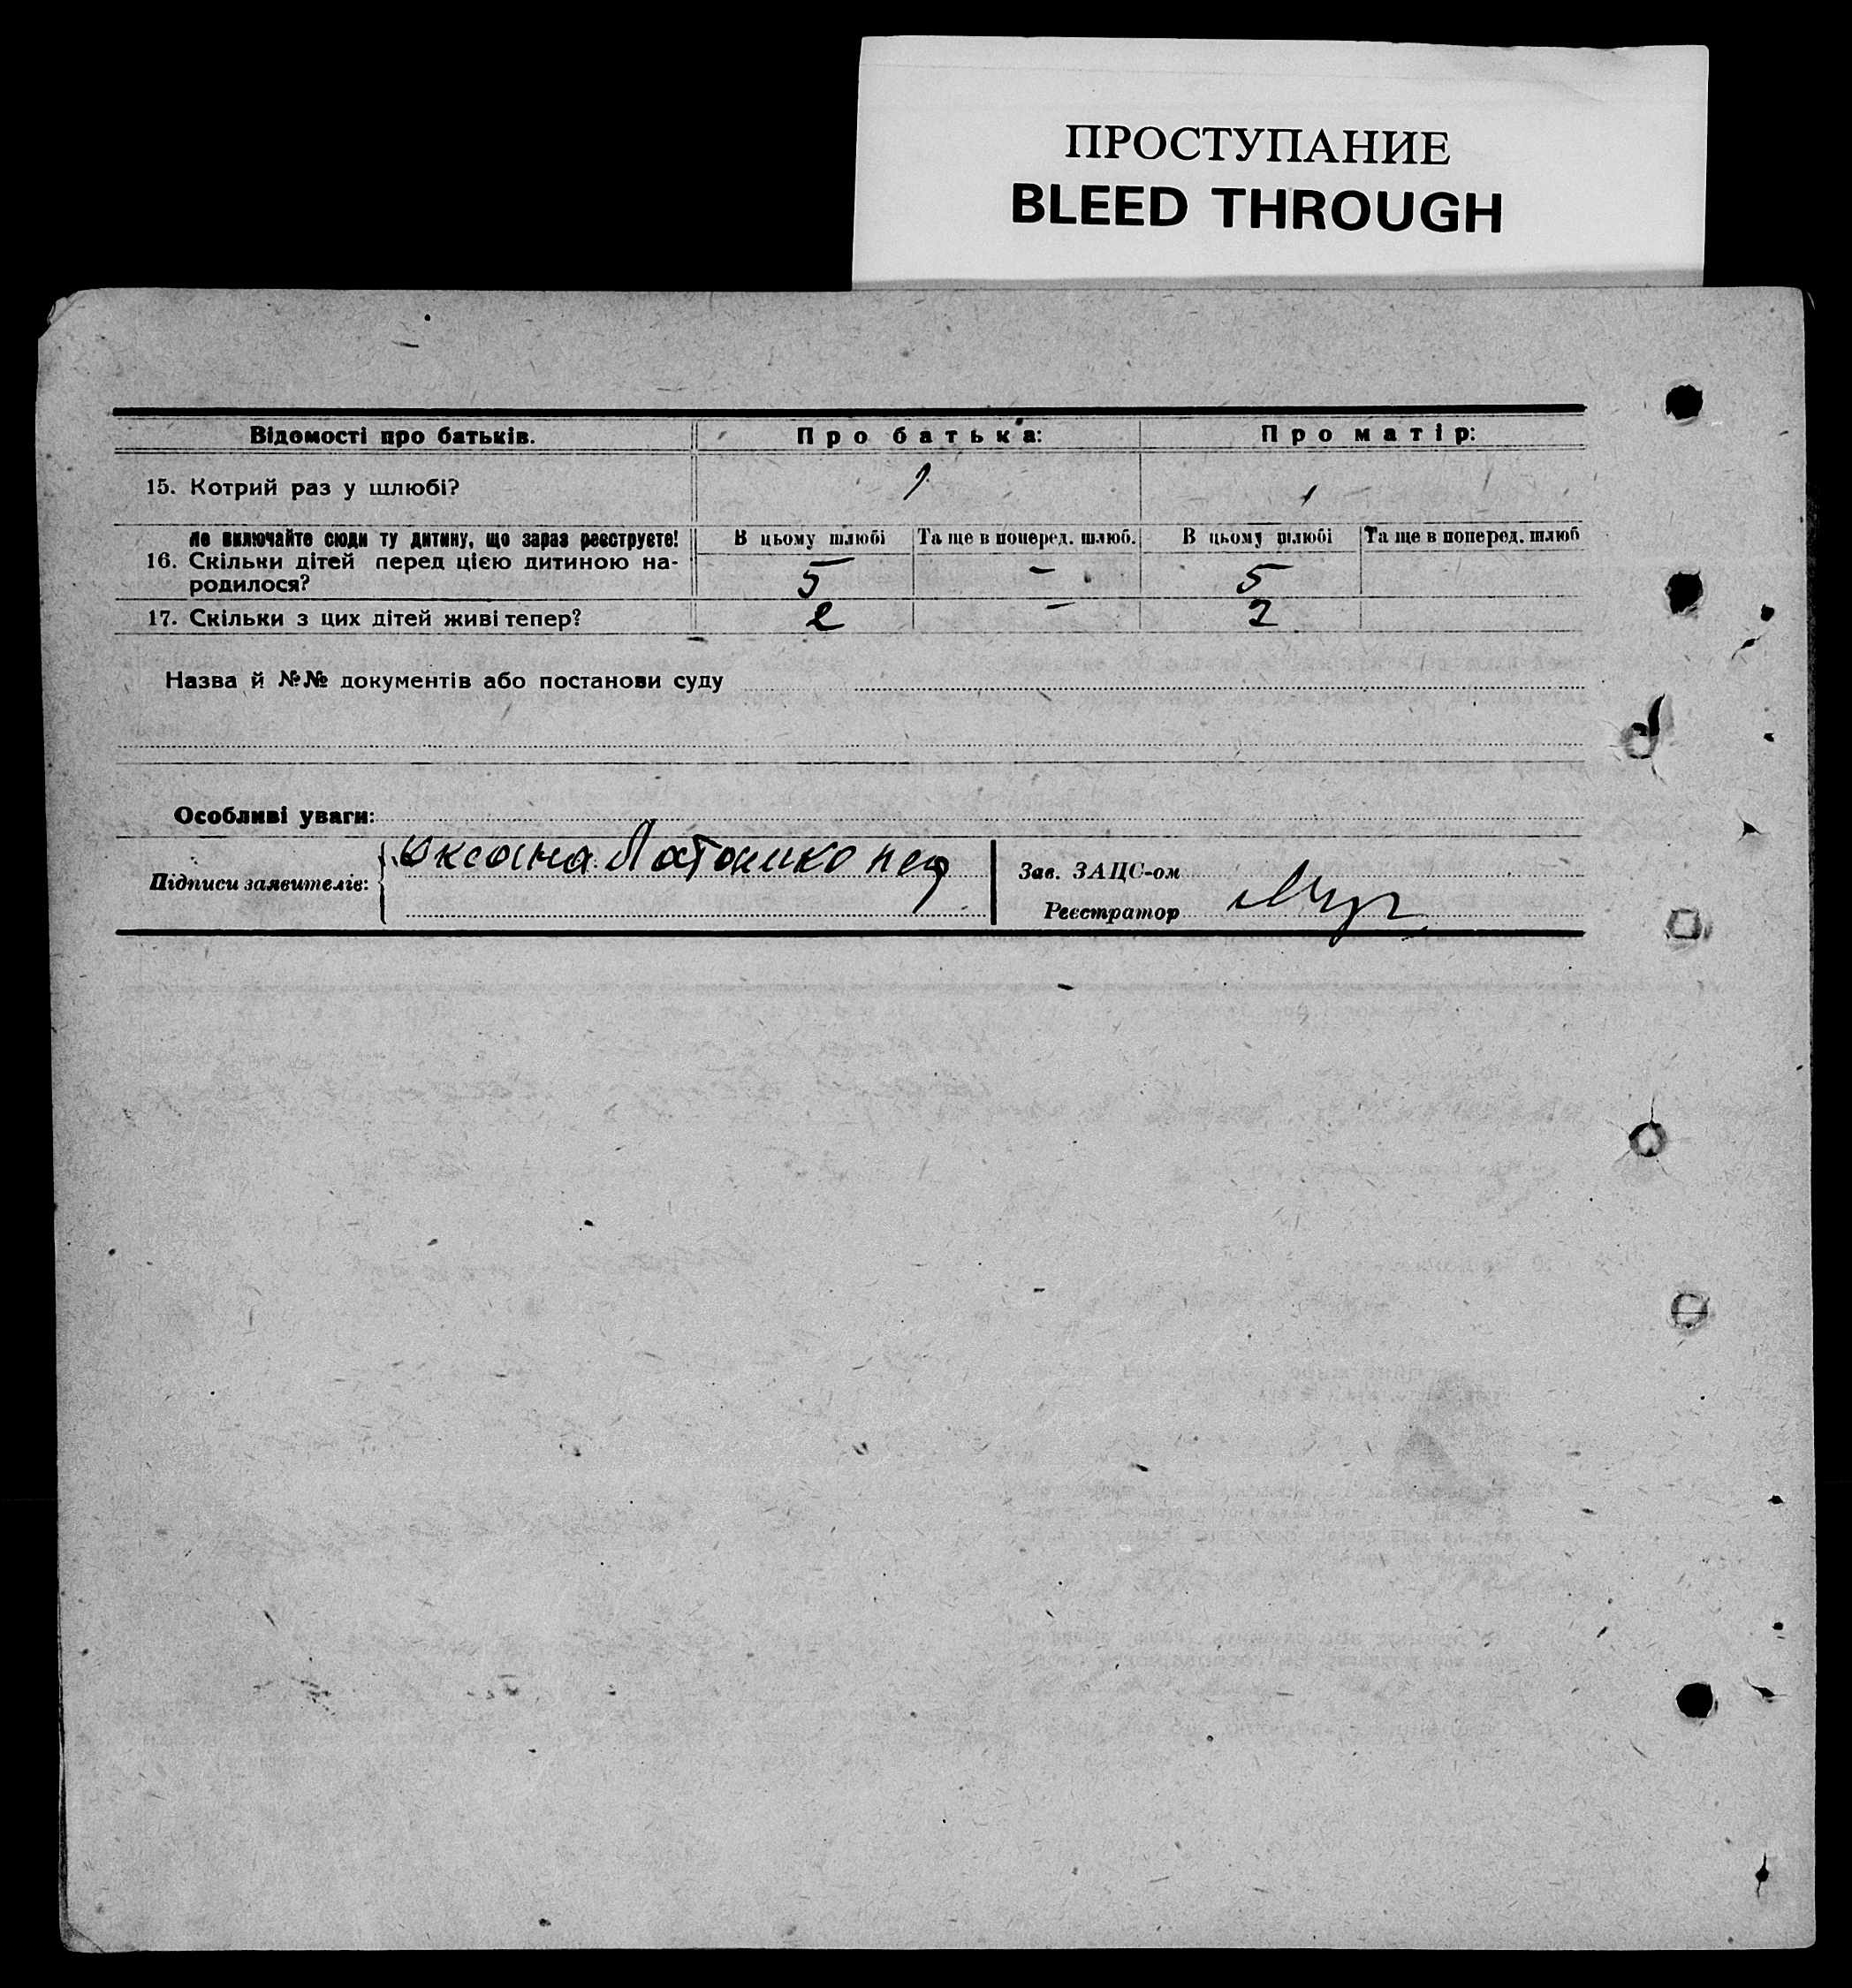 ПРОСТУПАНИЕ
BLEED THROUGH
Відомості про батьків. Про батька: Про матір:
15. Котрий раз у шлюбі? 1 1
Не включайте сюди ту дитину, що зараз реєструєте! В цьому шлюбі Та ще в поперед. шлюб. В цьому шлюбі Та ще в поперед. шлюб
16. Скільки дітей перед цією дитиною на-
родилося? 5 - 5
17. Скільки з цих дітей живі тепер? 2 - 2
Назва й №№ документів або постанови суду
Особливі уваги:
Оксана
Підписи заявителів: Зав. ЗАЦС-ом
Реєстратор